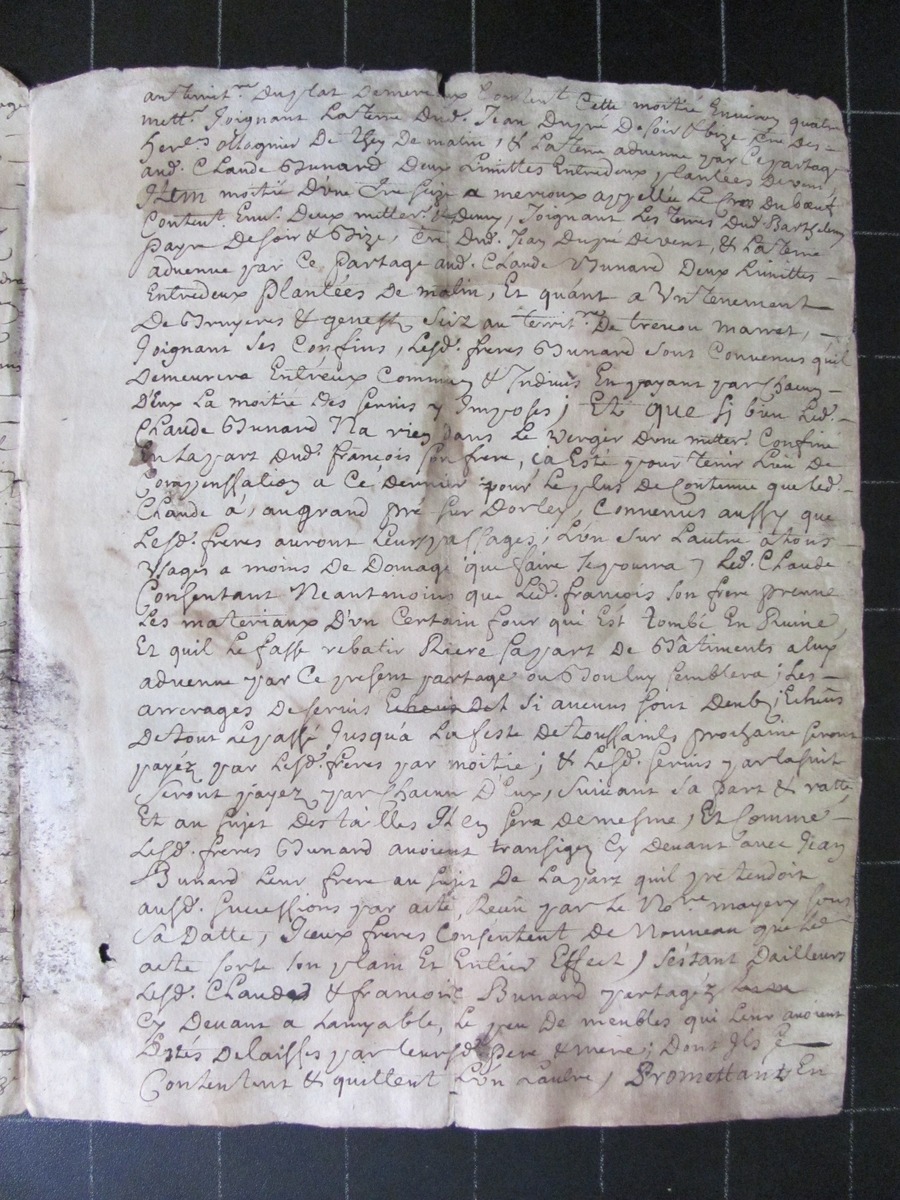 au territ.re Du plat Demereux Content Cette moitié Environ quatre
mett.s Joignant La terre Dud. Jean Dupré De soir & bize tre Des
her.s ottagnier De They De matin, & La terre advenue par Ce partage
aud. Claude Bunard Deux Limittes Entredeux plantées De vent
Item moitié D'une tre size a mereoux appellée Le Cros du boeuf
Content Env. Deux metter. & Demy, Joignant Les terres Dud. Barthelemy
payre De soir & Bize, tre Dud. Jean Dupré De vent, & La terre
advenue par Ce partage aud. Claude Bunard Deux Limittes
Entredeux plantées De matin, Et quánt a Vn tenement
De Bruyeres & genest Siz au territ.re De trevou marret,
Joignant Ses Confins, Lesd. freres Bunard sont Convenus quil
Demeurera Entreux Commun & Indivis En payant par Chacun
D'Eux La moitié des servis y Imposes; Et que Si bien Led.
Claude Bunard Na rien Dans Le Verger D'une metter. Confiné
En La part Dud. françois son frere, Ca Esté pour tenir Lieu De
Compenssation a Cé Dernier pour Le plus De Contenue que Led.
Claude á, au grand pré sur Dorley, Convenus aussy que
Lesd. freres auront Leurs passages, L'on sur Lautre a tous
Vsages a moins De Domage que faire se pourra, Led. Claude
Consentant Neantmoins que Led. françois son frere prenne
Les materiaux D'vn Certain four qui Est tombé En Ruine,
Et quil Le fasse rebatir Riere sa part De Bâtiments a luy
advenue par Ce present partage ou Bon luy semblera; Les
arrerages De servis Si aucuns sont Deubs, Echeus
De tout Le passé Jusquà La feste De toussaints prochaine seront
payez par Lesd. freres par moitié; & Lesd. servis par La suit
Seront payez par Chacun D'Eux, Suivant Sa part & ratte,
Et au sujet Des tailles Il En sera Demesme, Et Comme
Lesd. freres Bunard avoient transigez Cy Devant avec Jean
Bunard Leur frere au sujet De La part quil pretendoit
ausd. successions par acte, Receu par Le No.re mayery sous
Sa Datte, Iceux freres Consentent De Nouveau que Led.
acte sorte son plain Et Entier Effect, S'éstant Dailleurs
Lesd. Claude & françois Bunard partagéz
Cy Devant a Lamyable, Le peu De meubles qui Leur avoient
Estés Delaissés par leursd. pere & mere; Dont Ils se
Contentent & quittent L'vn Lautre, Promettants En